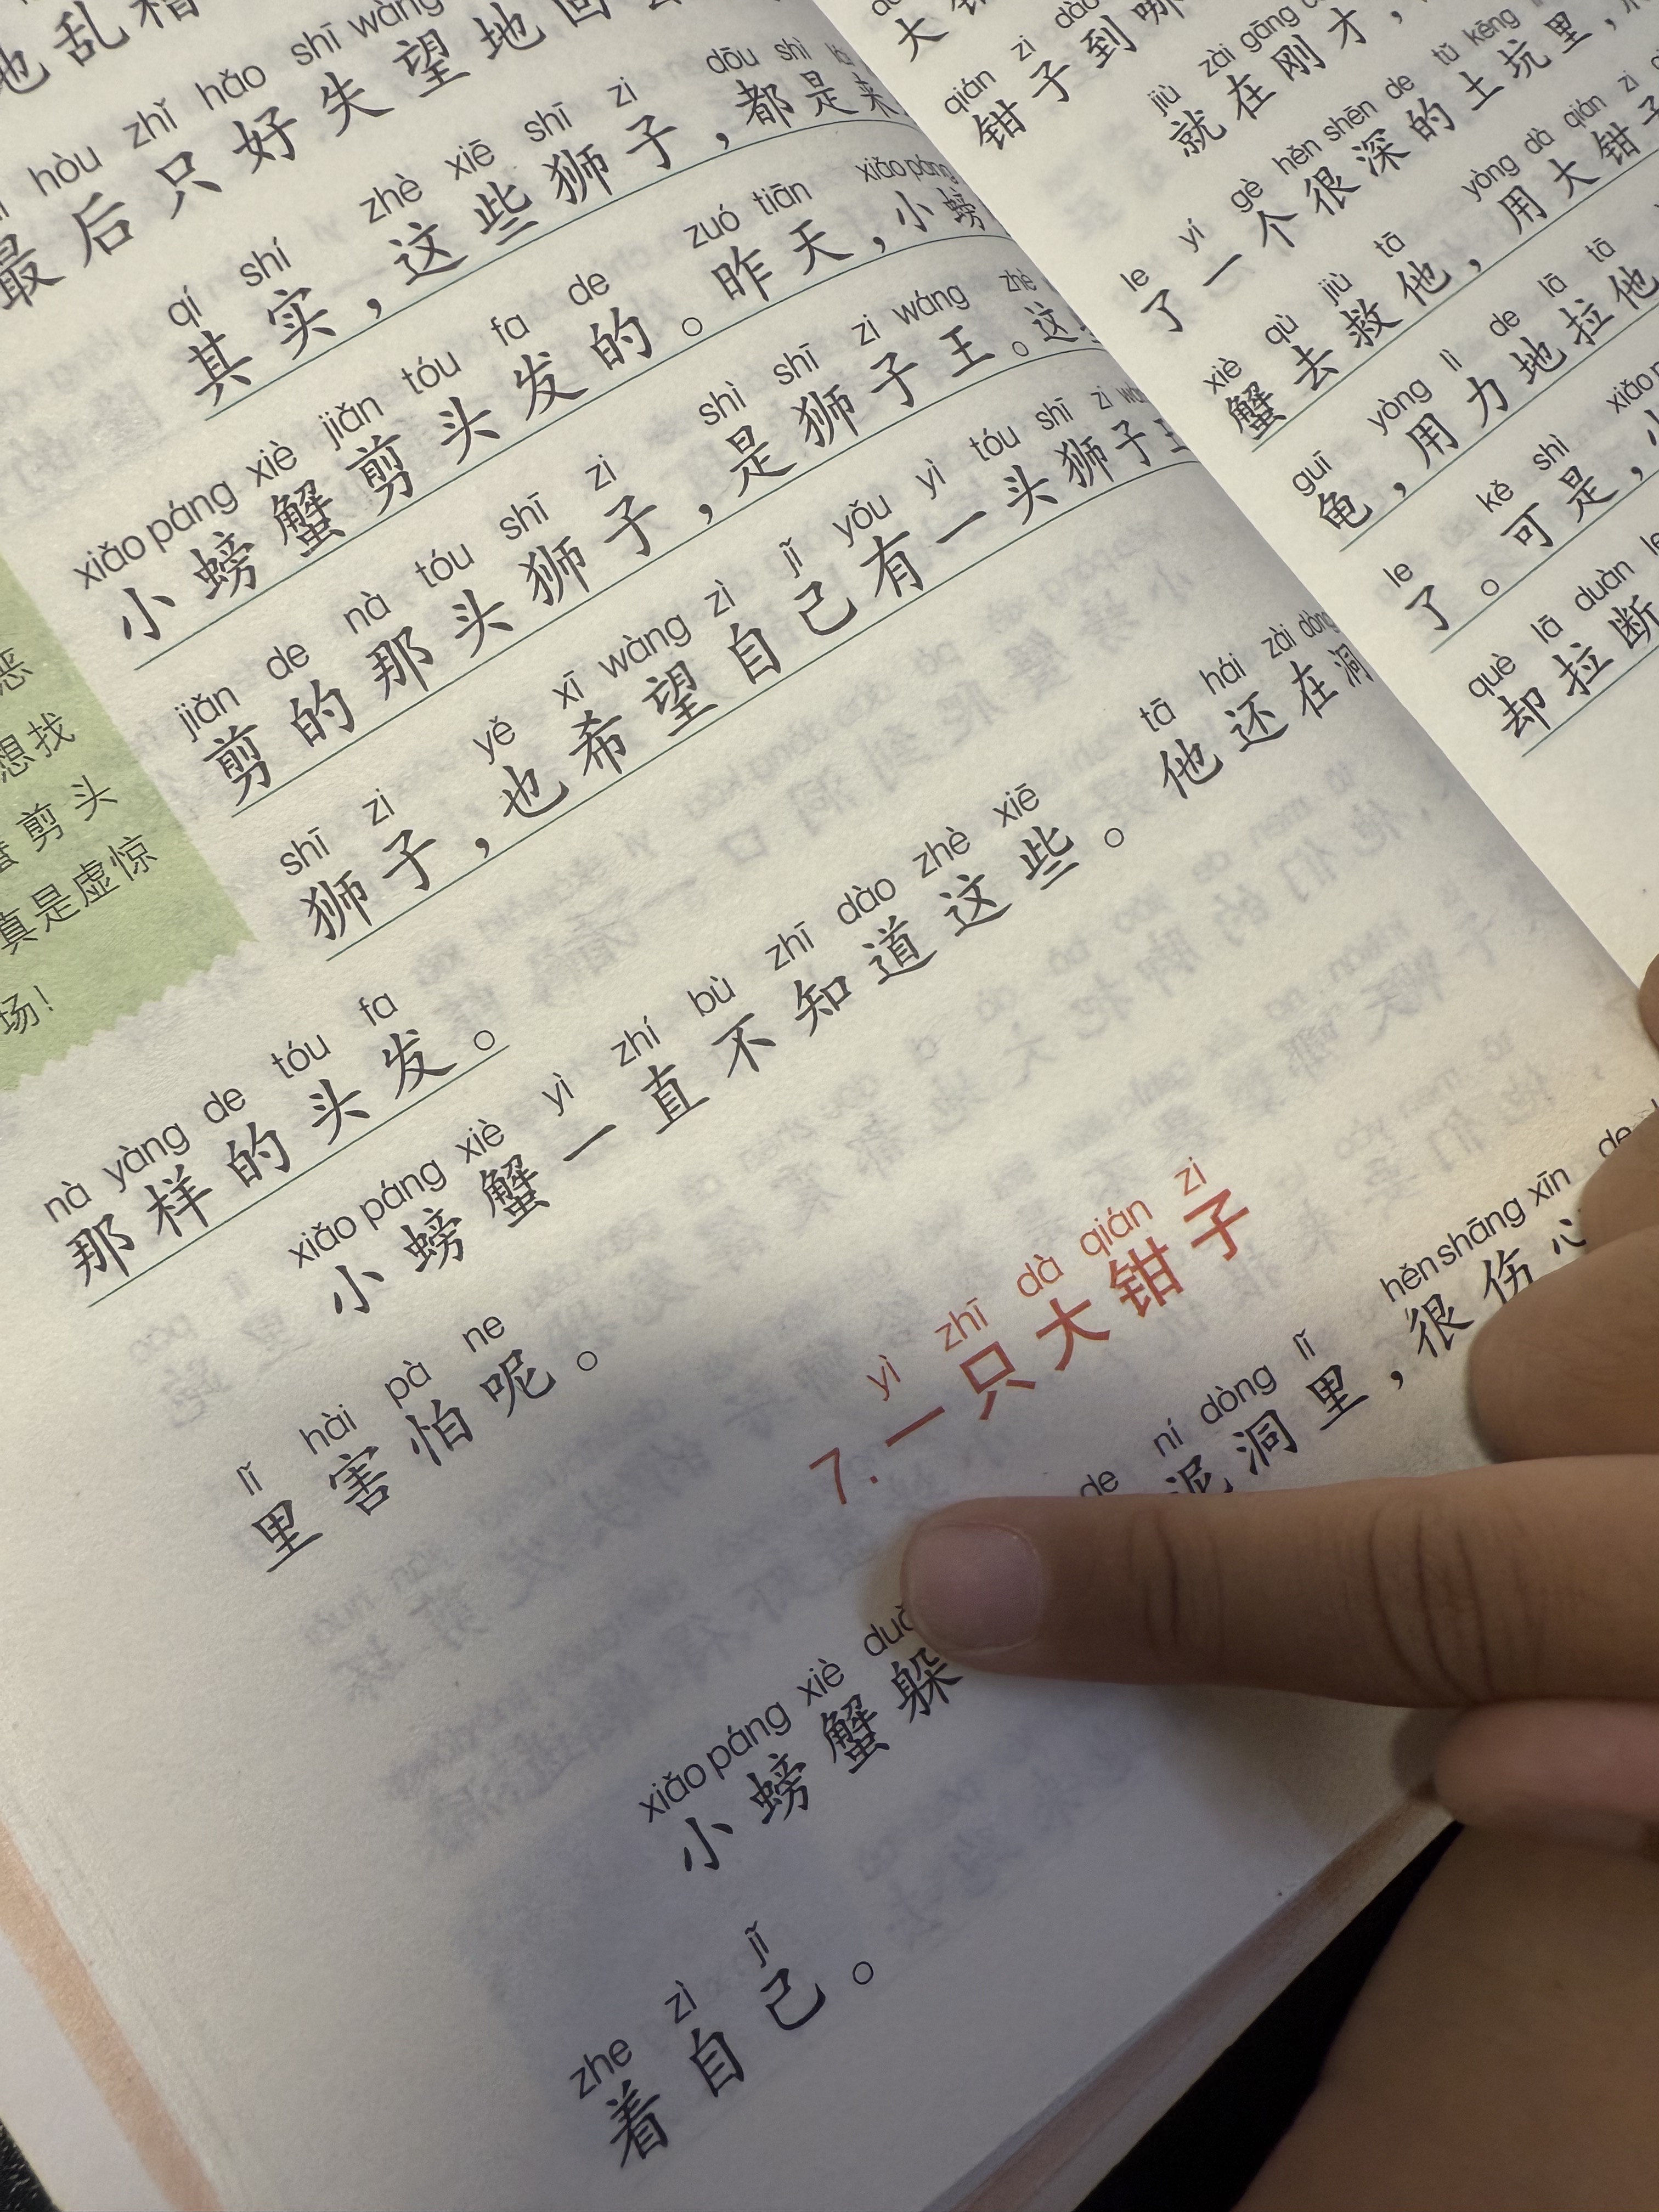 地乱
hòu zhǐ hǎo shī wàng
最后只好失望地回
qí shí zhè xiē shī zi dōu shì
其实，这些狮子，都是来
xiǎo páng xiè jiǎn tóu fa de zuó tiān xiǎo páng
小螃蟹剪头发的。昨天，小螃
jiǎn de nà tóu shī zi shì shī zi wáng zhè
剪的那头狮子，是狮子王。这
shī zi yě xī wàng zì jǐ yǒu yì tóu shī zi
狮子，也希望自己有一头狮子王
nà yàng de tóu fa
那样的头发。
xiǎo páng xiè yì zhí bù zhī dào zhè xiē tā hái zài dòng
小螃蟹一直不知道这些。他还在洞
lǐ hài pà ne
里害怕呢。
yì zhī dà qián zi
7.一只大钳子
xiǎo páng xiè de ní dòng lǐ hěn shāng xīn de
小螃蟹躲 泥洞里，很伤心
zhe zì jǐ
着自己。
恶
想找
剪头
真是虚惊
场！
大
qián zi dào
钳子到哪
jiù zài gāng
就在刚才，
le yí gè hěn shēn de tǔ kēng
了一个很深的土坑里，
xiè qù jiù tā yòng dà qián zi
蟹去救他，用大钳子
guī yòng lì de lā tā
龟，用力地拉他
le kě shì xiǎo
了。可是，小
què lā duàn le
却拉断